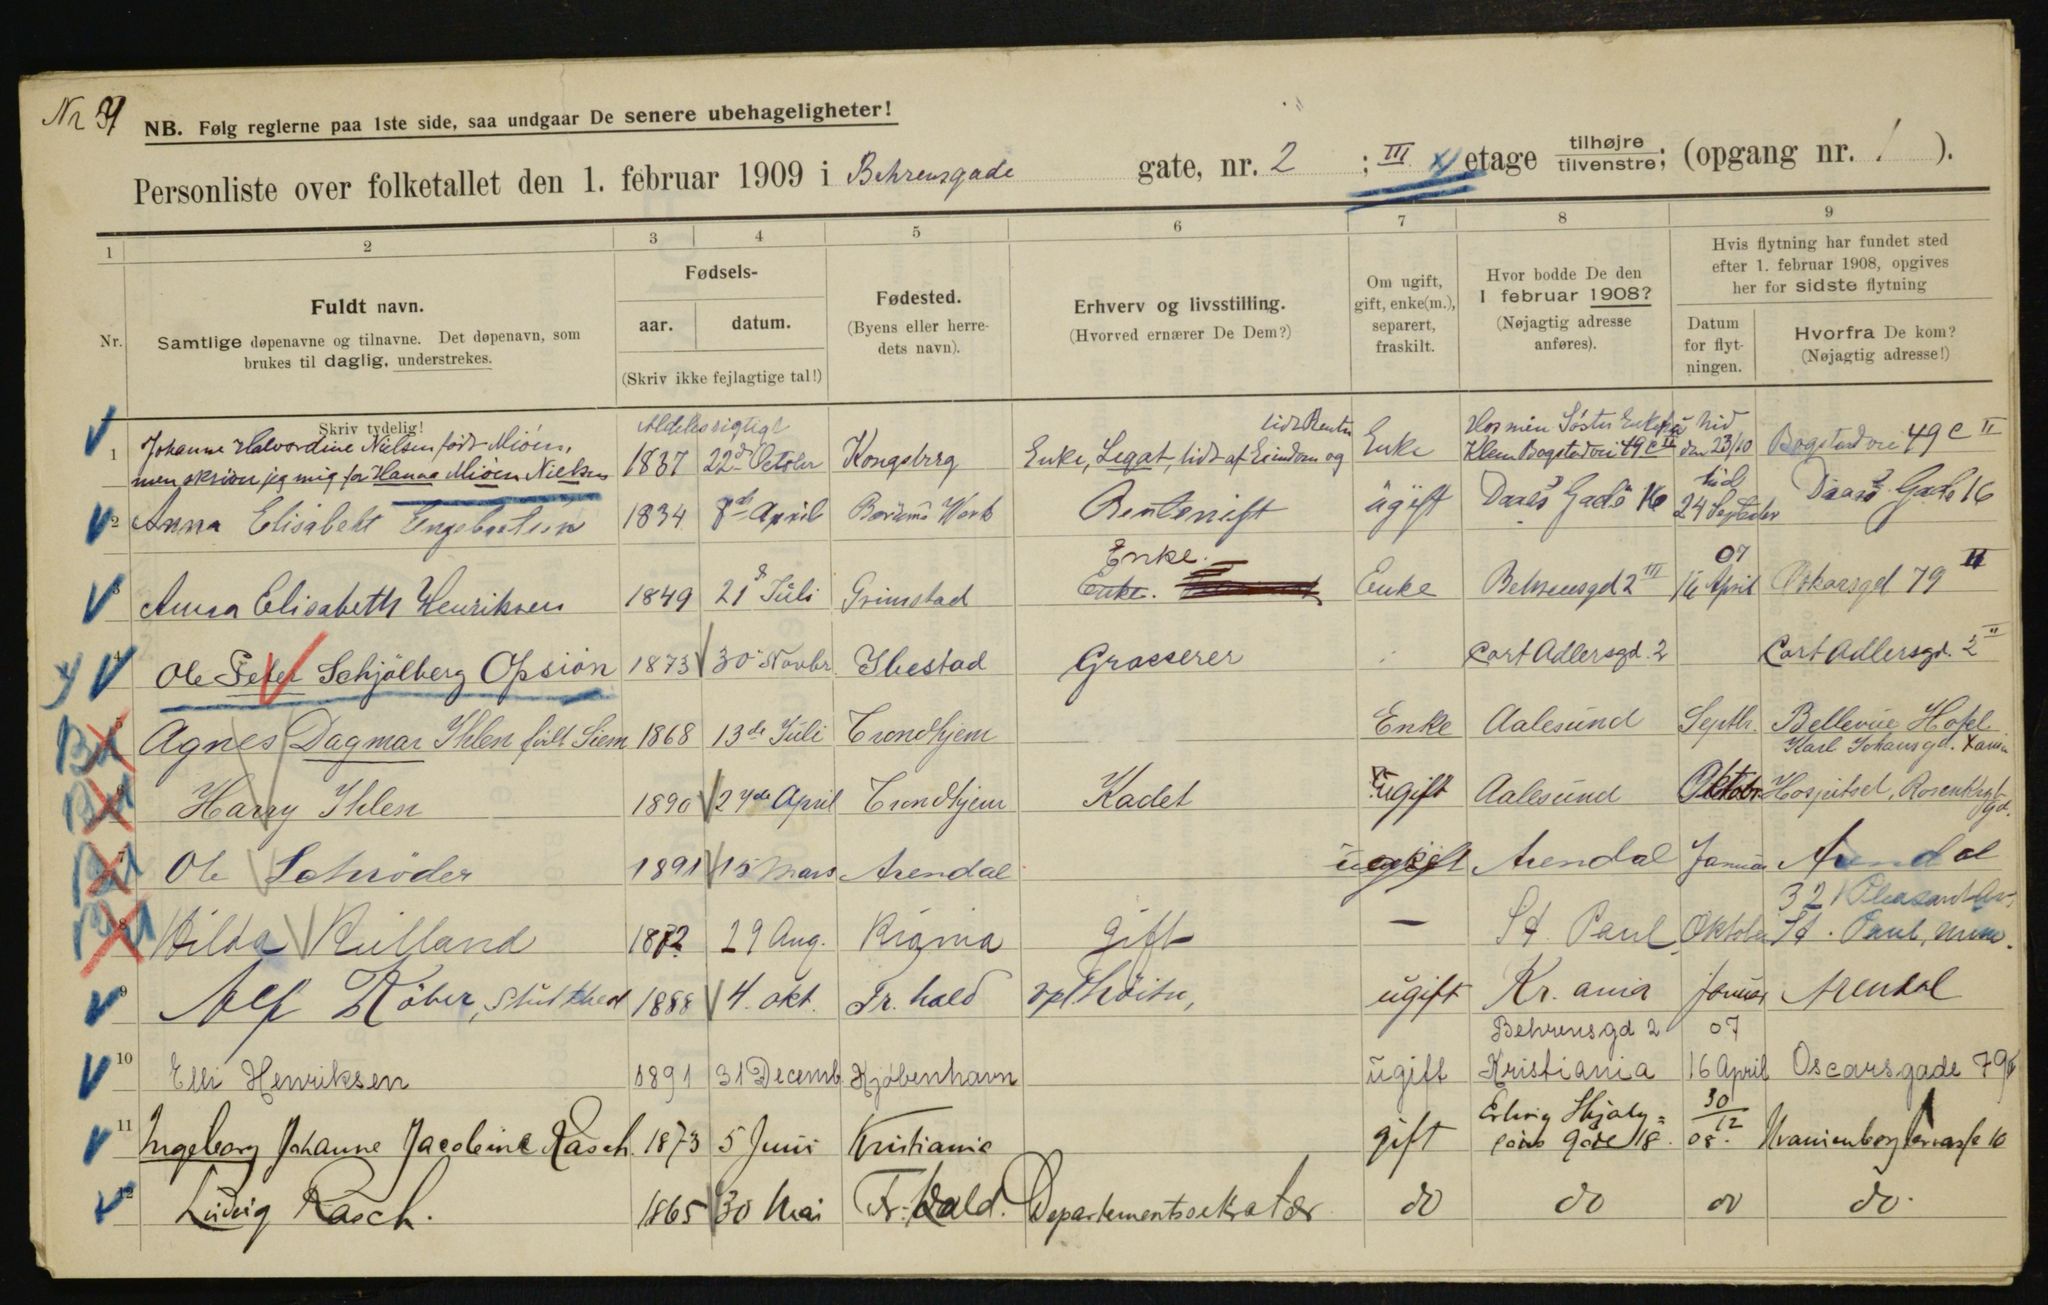 NB. Følg reglerne paa 1ste side, saa undgaar De senere ubehageligheter!
Personliste over folketallet den 1. februar 1909 i Behrensgade gate, nr. 2 ; III etage tilhøjre tilvenstre; (opgang nr. 1 ).
1 2 3 4 5 6 7 8 9
Nr.
Fuldt navn.
Samtlige døpenavne og tilnavne. Det døpenavn, som
brukes til daglig, understrekes.
Skriv tydelig!
Fødsels-
aar. datum.
(Skriv ikke fejlagtige tal!)
Fødested.
(Byens eller herre-
dets navn).
Erhverv og livsstilling.
(Hvorved ernærer De Dem?)
Om ugift,
gift, enke(m.),
separert,
fraskilt.
Hvor bodde De den
1 februar 1908?
(Nøjagtig adresse
anføres).
Hvis flytning har fundet sted
efter 1. februar 1908, opgives
her for sidste flytning
Datum
for flyt-
ningen.
Hvorfra De kom?
(Nøjagtig adresse!)
Aldeles rigtigt
Johanne Halvordine Nielsen født Miøen,
1 men skriver jeg mig for Hanna Miøen Nielsen 1837 22de October Kongsberg Enke, Legat, lidt af Eiendom og lidt Renter Enke Hos min Søster Enkefru Klem Bogstadvei 49 c II hid den 23/10 Bogstadvei 49 c II
2 Anna Elisabeth Engebretsen 1834 8de April Bærums Værk Rentenist ugift Daas Gade 16 hid 24 September Daas Gade 16
3 Anna Elisabeth Henriksen 1849 21 Juli Grimstad Enke. Enke Behrensgd 2 III 07 16 April Oskarsgd 79 II
4 Ole Peter Schjølberg Opsiøn 1873 30 Novbr. Ibestad Grosserer Cort Adlersgd. 2 Cort Adlersgd. 2 II
5 Agnes Dagmar Ihlen født Siem 1868 13de Juli Trondhjem Enke Aalesund Septbr. Bellevue Hotel
Karl Johansgd. Xania
6 Harry Ihlen 1890 24de April Trondhjem Kadet ugift Aalesund Oktobr Hospitset, Rosenkrtz gd.
7 Ole Schrøder 1891 15 Mars Arendal ugift Arendal Januar Arendal
8 Hilda Rulland 1872 29 Aug. Kr.ania gift — St. Paul Oktober 321 Pleasant Av. St. Paul, Minn.
9 Alf Røber, 1888 4. okt. Fr. hald ugift Kr. ania Januar Arendal
10 Elli Henriksen 1891 31 Decemb. Kjøbenhavn ugift Behrensgd 2 Kristiania 07 16 April Oscarsgade 79
11 Ingeborg Johanne Jacobine Rasch. 1873 5 Juni Kristiania gift Erling Skjalg-
sons gade 18. 30/12 08. Uranienborg terrasse 10
12 Ludvig Rasch. 1865 30 Mai Fr. hald. Departementssekretær do do do do.